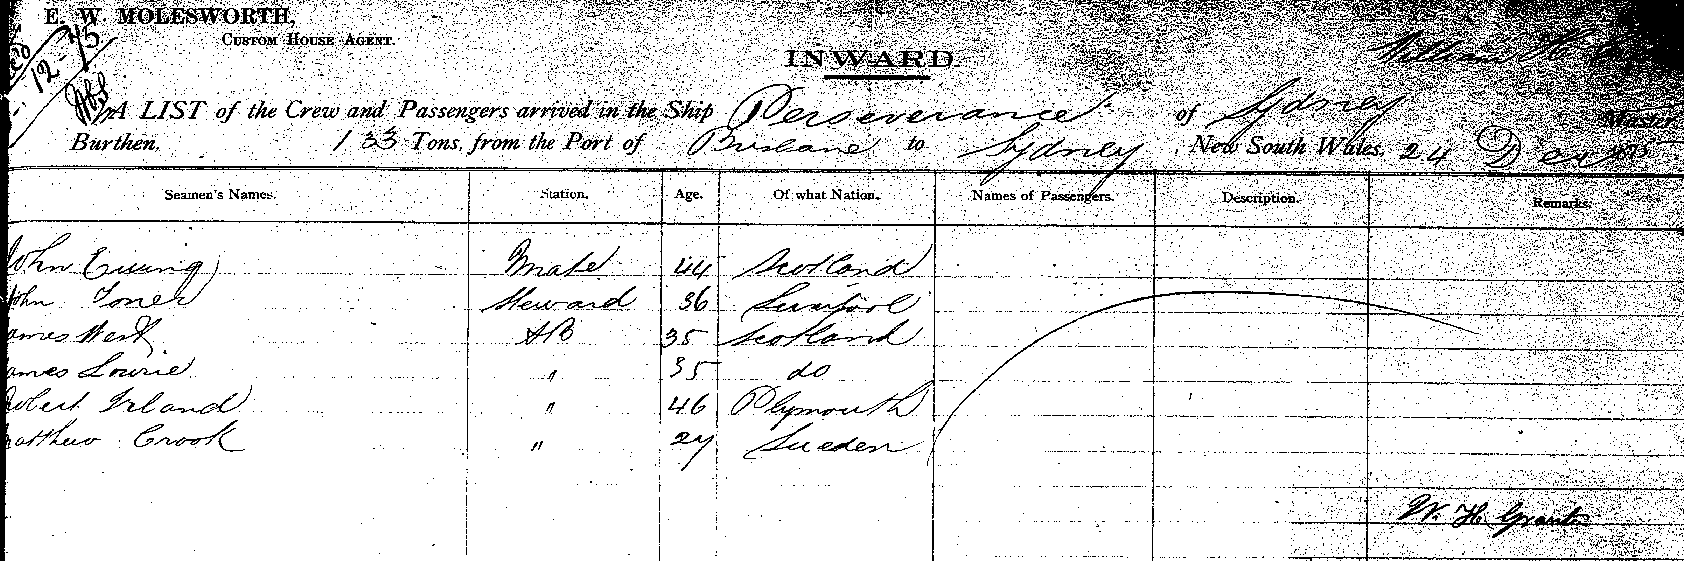 E. W. MOLESWORTH,
CUSTOM HOUSE AGENT.
12-75
INWARD.
William H.
A LIST of the Crew and Passengers arrived in the Ship Perseverance of Sydney Master
Burthen, 133 Tons, from the Port of Brisbane to Sydney, New South Wales, 24 Dec 1875
Seamen's Names. Station. Age. Of what Nation. Names of Passengers. Description. Remarks.
John Ewing Mate 44 Scotland
John Jones Steward 36 Liverpool
ames West AB 35 Scotland
ames Lowrie " 35 do
Robert Ireland " 46 Plymouth
Matthew Crook " 27 Sweden
W. H. Grant